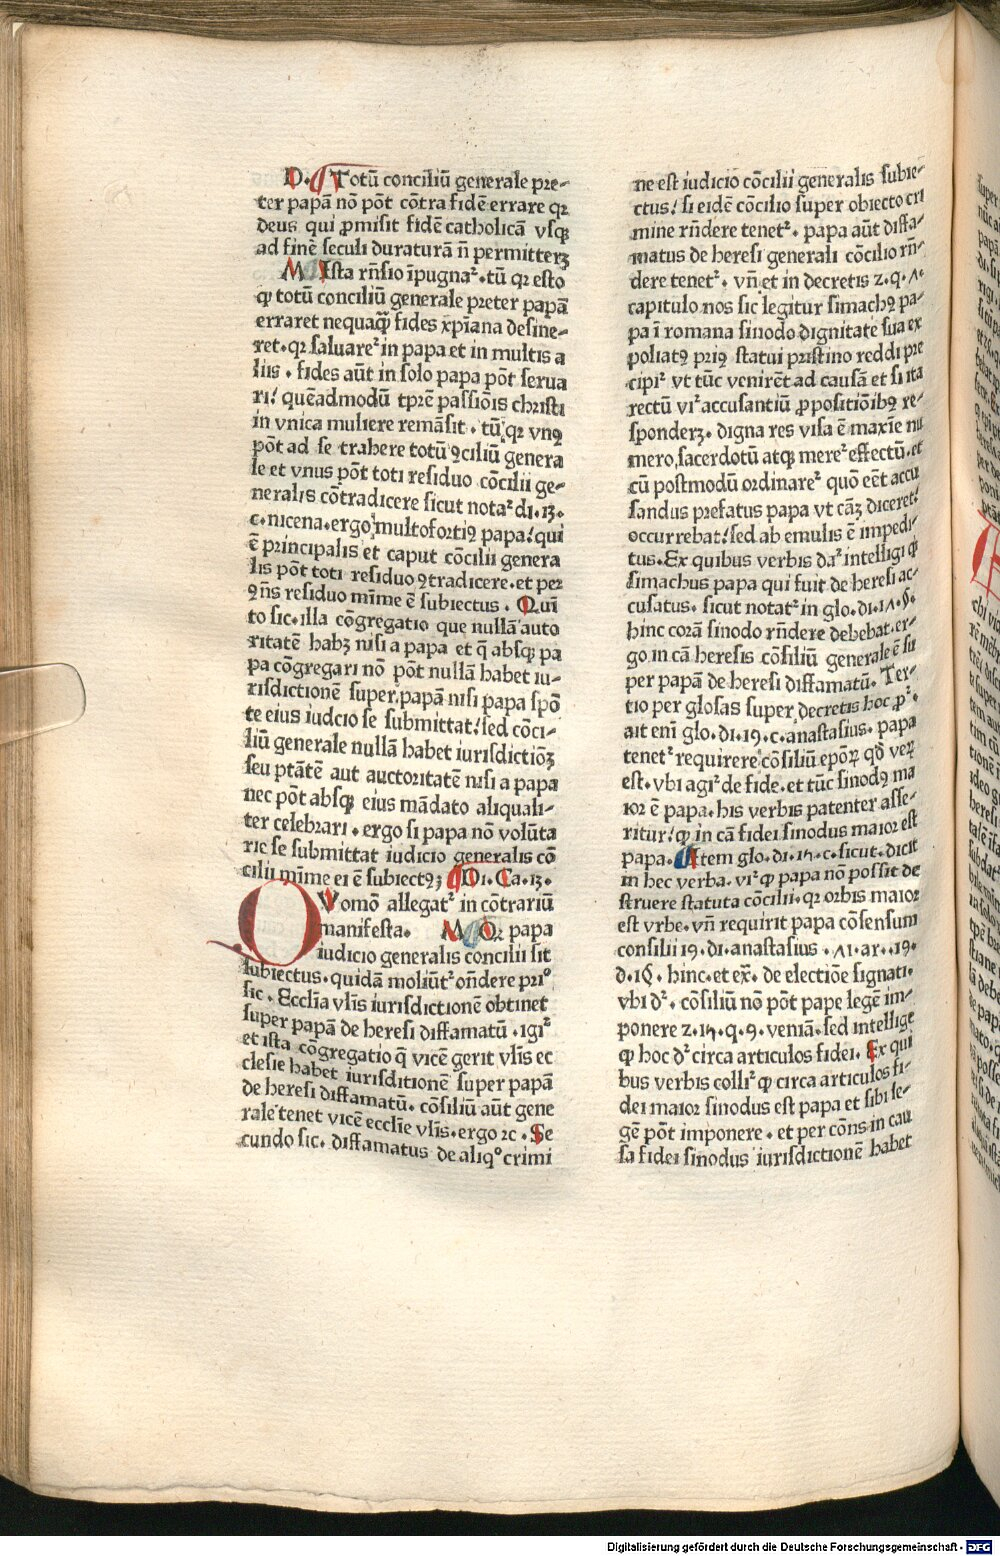 D. Totū conciliū generale pre-
ter papā nō pōt cōtra fidē errare qꝛ
deus qui ꝓmisit fidē catholicā vsqꝫ
ad finē seculi duraturā n̄ permitterꝫ
M Ista rn̄sio īpugnaᷣ. tū qꝛ esto
ꝙ totū conciliū generale preter papā
erraret nequaqᷓꝫ fides xp̄iana desine-
ret. qꝛ saluareᷣ in papa et in multis a
liis. fides aūt in solo papa pōt serua
ri! quēadmodū tp̄re passiōis christi
in vnica muliere remāsit. tū qꝛ vnꝰ
pōt ad se trahere totū ꝯciliū genera
le et vnus pōt toti residuo cōcilii ge-
neralis cōtradicere sicut notaᷣ di. 13.
c. nicena. ergo multofortiꝰ papa! qui
ē principalis et caput cōcilii genera
lis pōt toti residuo ꝯtradicere. et per
ꝯn̄s residuo mīme ē subiectus. Quī
to sic. illa cōgregatio que nullā auto
ritatē habꝫ nisi a papa et q̄ absqꝫ pa
pa cōgregari nō pōt nullā habet iu-
risdictionē super papā nisi papa spō
te eius iudcio se submittat! sed cōci-
liū generale nullā habet iurisdictiōꝫ
seu ptātē aut auctoritatē nisi a papa
nec pōt absqꝫ eius mādato aliquali-
ter celebrari. ergo si papa nō volūta
rie se submittat iudicio generalis cō
cilii mīme ei ē subiectꝰ; Di. Ca. 13.
QVomō allegatᷣ in cōtrariū
manifesta. M Qꝛ papa
iudicio generalis concilii sit
subiectus. quidā moliūtᷣ on̄dere prīo
sic. Ecclīa vlīs iurisdictionē obtinet
super papā de heresi diffamatū. igiᷣ
et ista cōgregatio q̄ vicē gerit vlīs ec
clesie habet iurisditionē super papā
de heresi diffamatū. cōsiliū aūt gene
rale tenet vicē ecclīe vlīs. ergo ꝛc. Se
cundo sic. diffamatus de aliqͦ crimi
ne est iudicio cōcilii generalis subie-
ctus! si eidē cōcilio super obiecto cri
mine rn̄dere tenetᷣ. papa aūt diffa-
matus de heresi generali cōcilio rn̄-
dere tenetᷣ. vn̄ et in decretis 2. q. 1.
capitulo nos sic legitur simachꝰ pa-
pa ī romana sinodo dignitate sua ex
poliatꝰ priꝰ statui pristino reddi pre
cipiᷣ vt tūc venirēt ad causā et si ita
rectū viᷣ accusantiū ꝓpositiōibꝰ re-
sponderꝫ. digna res visa ē maxīe nu
mero sacerdotū atqꝫ mereᷣ effectū. et
cū postmodū ordinareᷣ quō eēt accu
sandus prefatus papa vt cāꝫ diceret!
occurrebat! sed ab emulis ē impedi-
tus. Ex quibus verbis daᷣ intelligi ꝙ
simachus papa qui fuit de heresi ac-
cusatus. sicut notatᷣ in glo. di. 17. §.
hinc corā sinodo rn̄dere debebat. er-
go in cā heresis cōsiliū generale ē su
per papā de heresi diffamatū. Ter-
tio per glosas super decretis hoc ꝓᷣ.
ait enī glo. di. 19. c. anastasius. papa
tenetᷣ requirere cōsiliū epōꝝ qd̄ veꝝ
est. vbi agiᷣ de fide. et tūc sinodꝰ ma
ior ē papa. his verbis patenter asse-
ritur! ꝙ in cā fidei sinodus maior est
papa. Item glo. di. 15. c. sicut. dicit
in hec verba. viᷣ ꝙ papa nō possit de
struere statuta cōcilii. qꝛ orbis maior
est vrbe. vn̄ requirit papa cōsensum
consilii 19. di. anastasius. 11. ar. 19.
d. 16. hinc. et ex̄. de electiōe signati.
vbi dᷣ. cōsiliū nō pōt pape legē im-
ponere 2. 15. q. 9. veniā. sed intellige
ꝙ hoc dᷣ circa articulos fidei. Ex qui
bus verbis colliᷣ ꝙ circa articulos fi-
dei maior sinodus est papa et sibi le-
gē pōt imponere. et per cōns in cau
sa fidei sinodus iurisdictionē habet
Digitalisierung gefördert durch die Deutsche Forschungsgemeinschaft - DFG